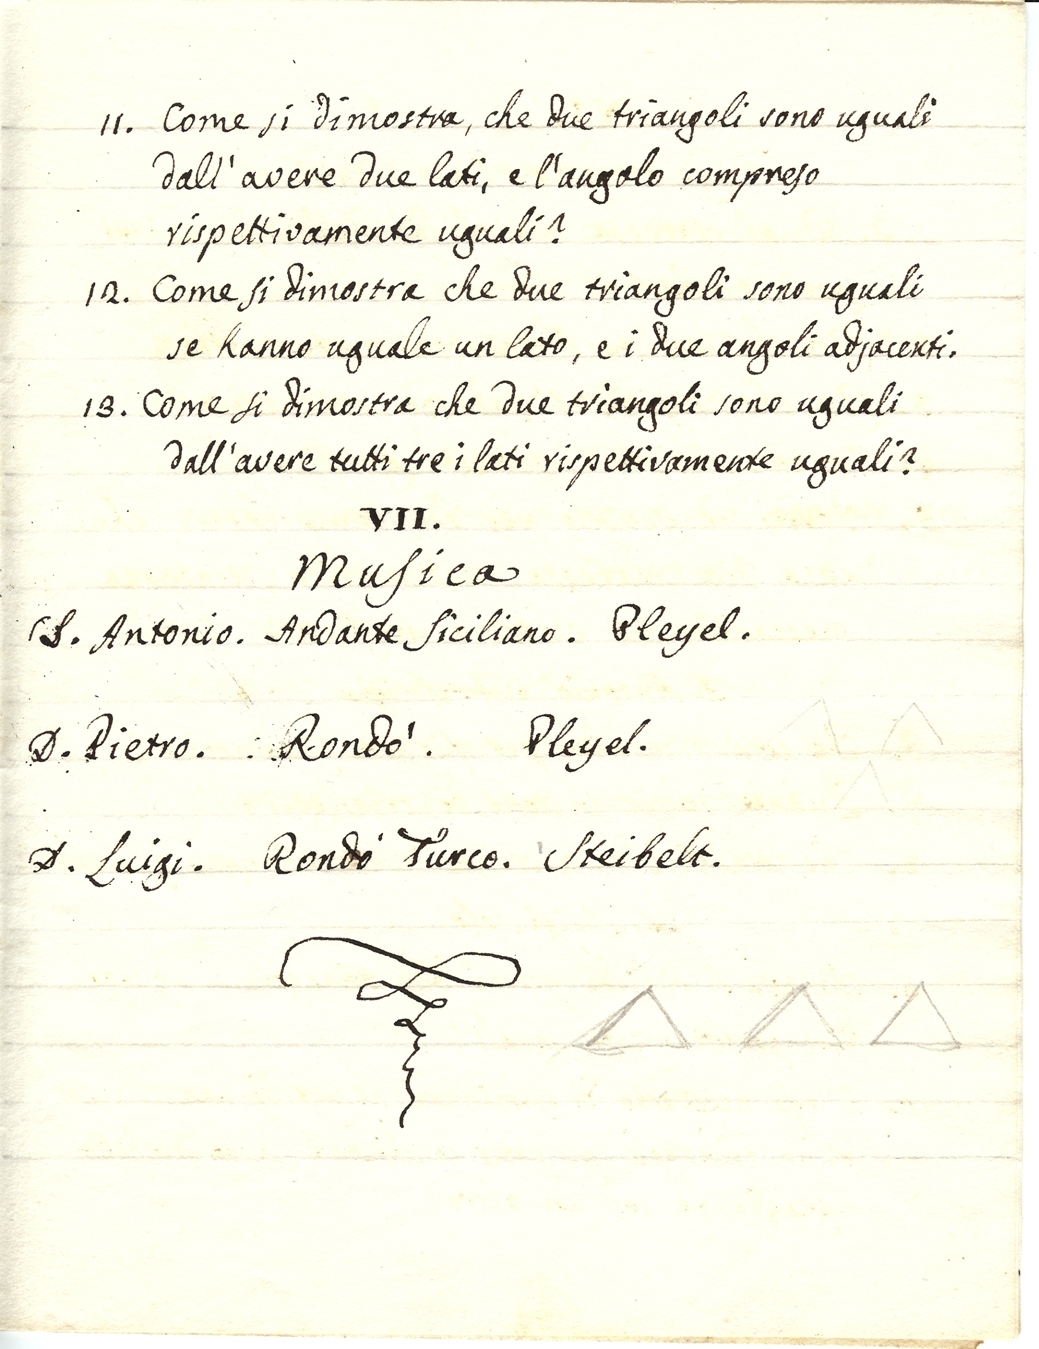 11. Come si dimostra, che due triangoli sono uguali
dall'avere due lati, e l'angolo compreso
rispettivamente uguali?
12. Come si dimostra che due triangoli sono uguali
se hanno uguale un lato, e i due angoli adjacenti.
13. Come si dimostra che due triangoli sono uguali
dall'avere tutti tre i lati rispettivamente uguali?
VII.
Musica
S. Antonio. Andante Siciliano. Pleyel.
D. Pietro. Rondó. Pleyel.
D. Luigi. Rondó Turco. Steibelt.